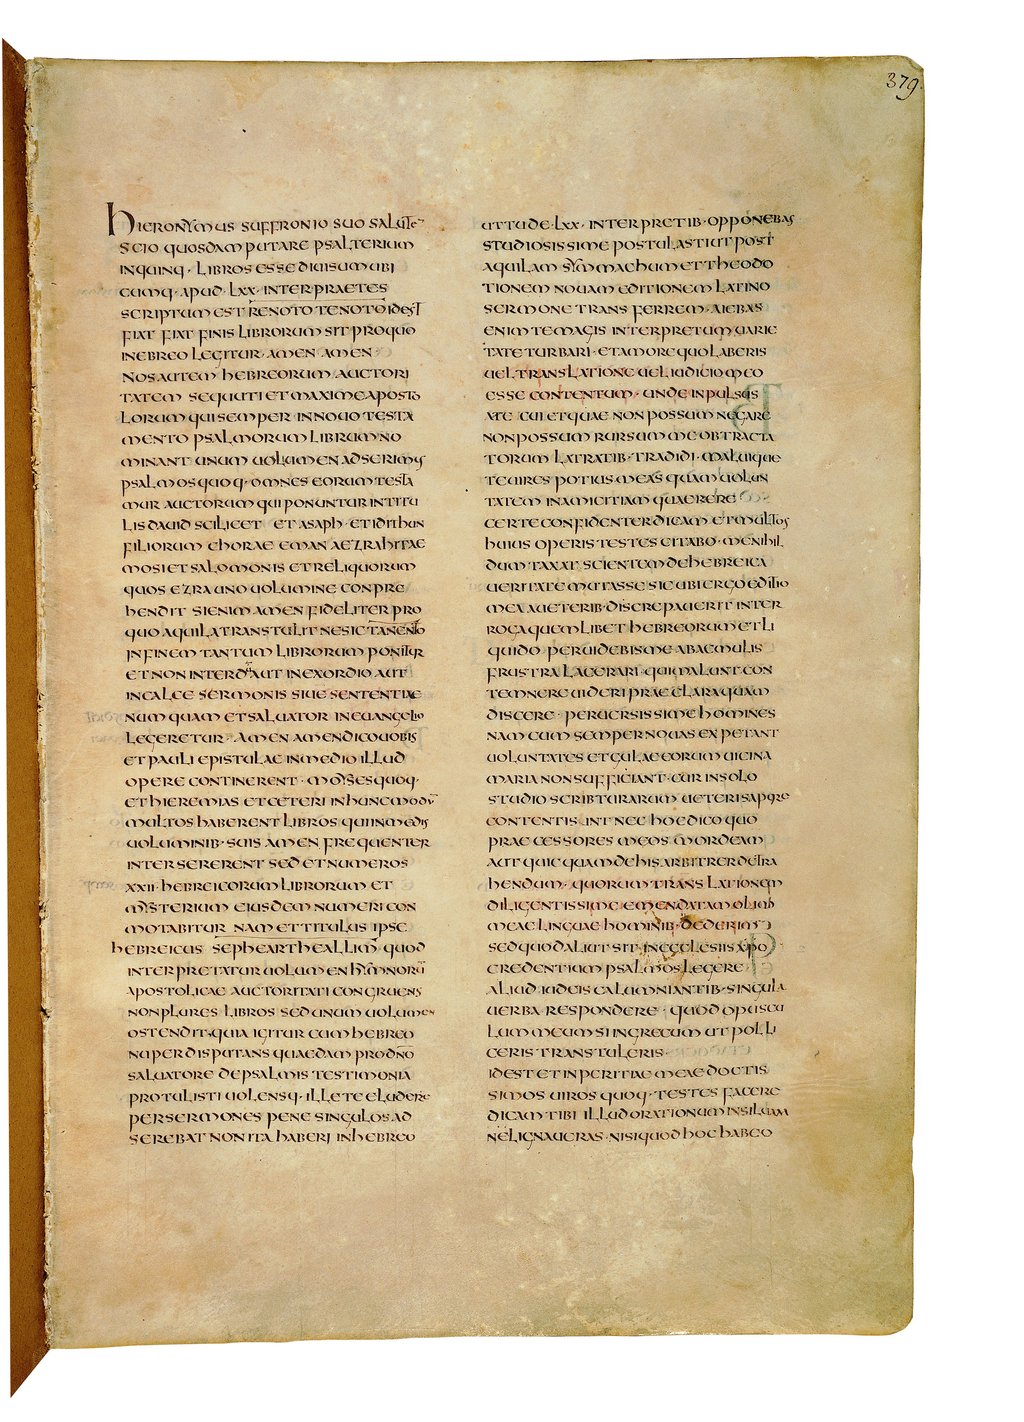 379
HIERONYMUS SUFFRONIO SUO SALUTE
SCIO QUOSDAM PUTARE PSALTERIUM
INQUINQ· LIBROS ESSE DIUISUM UBI
CUMQ· APUD· LXX· INTERPRAETES
SCRIPTUM EST RENOTO TENOTO IDEST
FIAT FIAT FINIS LIBRORUM SIT PRO QUO
IN EBREO LEGITUR· AMEN AMEN·
NOS AUTEM HEBREORUM AUCTORI
TATEM SEQUUTI ET MAXIME APOSTO
LORUM QUI SEMPER IN NOUO TESTA
MENTO PSALMORUM LIBRUM NO
MINANT UNUM UOLUMEN ADSERIMUS
PSALMOS QUOQ· OMNES EORUM TESTA
MUR AUCTORUM QUI PONUNTUR IN TITU
LIS DAUID SCILICET ET ASAPH· ET IDITHUN
FILIORUM CHORAE EMAN AEZRAHITAE
MOSI ET SALOMONIS ET RELIQUORUM
QUOS EZRA UNO UOLUMINE CONPRE
HENDIT SI ENIM AMEN FIDELITER PRO
QUO AQUILA TRANSTULIT NESIC TANENTO
IN FINEM TANTUM LIBRORUM PONITUR
ET NON INTERDU AUT IN EXORDIO AUT
IN CALCE SERMONIS SIUE SENTENTIAE
NUMQUAM ET SALUATOR IN EUANGELIO
LEGERETUR· AMEN AMEN DICO UOBIS
ET PAULI EPISTULAE IN MEDIO ILLUD
OPERE CONTINERENT· MOYSES QUOQ·
ET HIEREMIAS ET CETERI IN HUNC MODU
MULTOS HABERENT LIBROS QUI IN MEDIS
UOLUMINIB· SUIS AMEN FREQUENTER
INTERSERERENT SED ET NUMEROS
XXII· HEBREICORUM LIBRORUM ET
MYSTERIUM EIUSDEM NUMERI CON
MOTABITUR NAM ET TITULUS IPSE
HEBREICUS SEPHEARTHEALLIM· QUOD
INTERPRETATUR UOLUMEN HYMNORU
APOSTOLICAE AUCTORITATI CONGRUENS
NON PLURES LIBROS SED UNUM UOLUMEN
OSTENDIT· QUIA IGITUR CUM HEBREO
NUPER DISPUTANS QUAEDAM PRO DNO
SALUATORE DE PSALMIS TESTIMONIA
PROTULISTI UOLENSQ· ILLE TE ELUDERE
PER SERMONES PENE SINGULOS AD
SEREBAT NON ITA HABERI IN HEBREO
UT TU DE· LXX· INTERPRETIB· OPPONEBAS
STUDIOSISSIME POSTULASTI UT POST
AQUILAM SYMMACHUM ET THEODO
TIONEM NOUAM EDITIONEM LATINO
SERMONE TRANSFERREM· AIEBAS
ENIM TE MAGIS INTERPRETUM UARIE
TATE TURBARI· ET AMORE QUO LABERIS
UEL TRANSLATIONE UEL IUDICIO MEO
ESSE CONTENTUM· UNDE INPULSUS
ATE CUI ET QUAE NON POSSUM NEGARE
NON POSSUM RURSUM ME OBTRACTA
TORUM LATRATIB· TRADIDI· MALUI QUE
TE UIRES POTIUS MEAS QUAM UOLUN
TATEM IN AMICITIAM QUAERERE
CERTE CONFIDENTER DICAM ET MULTOS
HUIUS OPERIS TESTES CITABO· ME NIHIL
DUM TAXAT SCIENTEM DE HEBREICA
UERITATE MUTASSE SIC UBI ERGO EDITIO
MEA A UETERIB· DISCREPAUERIT INTER
ROGA QUEMLIBET HEBREORUM ET LI
QUIDO· PERUIDEBIS ME AB AEMULIS
FRUSTRA LACERARI· QUI MALUNT CON
TEMNERE UIDERI PRAECLARA QUAM
DISCERE· PERUERSISSIME HOMINES
NAM CUM SEMPER NOUAS EXPETANT
UOLUNTATES ET GULAE EORUM UICINA
MARIA NON SUFFICIANT· CUR IN SOLO
STUDIO SCRIBTURARUM UETERI SAPORE
CONTENTIS INT NEC HOE DICO QUO
PRAECESSORES MEOS MORDEAM
AUT QUICQUAM DE HIS ARBITRER DETRA
HENDUM· QUORUM TRANSLATIONEM
DILIGENTISSIME EMENDATAM OLIM
MEAE LINGUAE HOMINIB· DEDERIM
SED QUOD ALIUT SIT· IN ECCLESIIS XPO
CREDENTIUM PSALMOS LEGERE
ALIUD IUDEIS CALUMNIANTIB· SINGULA
UERBA RESPONDERE· QUOD OPUSCU
LUM MEUM SI IN GRECUM UT POLLI
CERIS TRANSTULERIS·
IDEST ET INPERITIAE MEAE DOCTIS
SIMOS UIROS QUOQ· TESTES FACERE
DICAM TIBI ILLUD ORATIONUM IN SILUAM
NE LIGNA UERAS· NISI QUOD HOC HABEO